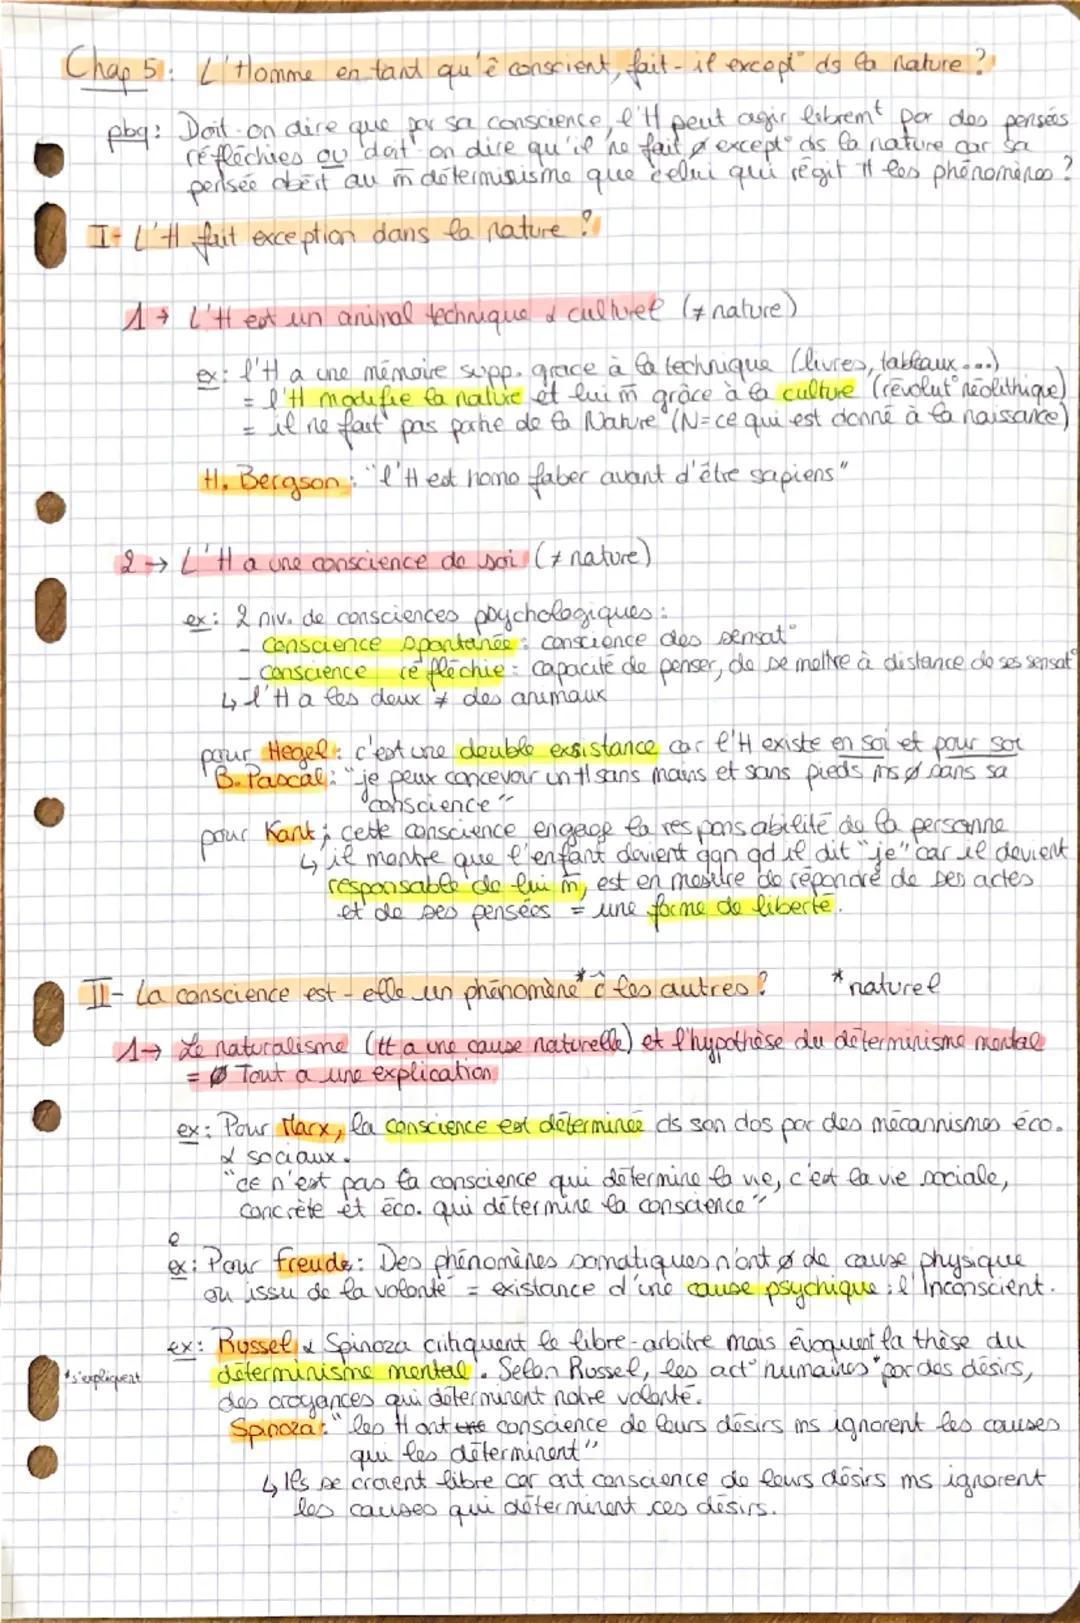 Chap 5 : L'Homme en tant qu'ê conscient, fait-il except° ds la nature ?
pbq : Doit-on dire que par sa conscience, l'H peut agir libremt par des pensées
réfléchies ou doit on dire qu'il ne fait ∅ except° ds la nature car sa
pensée obéit au m̄ déterminisme que celui qui régit tt les phénomènes ?
I- L'H fait exception dans la nature ?
1 → L'H est un animal technique & culturel (≠ nature)
ex : l'H a une mémoire supp. grâce à la technique (livres, tableaux...)
= l'H modifie la nature et lui m̄ grâce à la culture (révolut° néolithique)
= il ne fait pas partie de la Nature (N = ce qui est donné à la naissance)
H. Bergson : "l'H est homo faber avant d'être sapiens"
2 → L'H a une conscience de soi (≠ nature)
ex : 2 niv. de consciences psychologiques :
- conscience spontanée : conscience des sensat°
- conscience réfléchie : capacité de penser, de se mettre à distance de ses sensat°
↳ l'H a les deux ≠ des animaux
pour Hegel : c'est une double exsistance car l'H existe en soi et pour soi
B. Pascal : "je peux concevoir un H sans mains et sans pieds ms ∅ sans sa
conscience"
pour Kant ; cette conscience engage la responsabilité de la personne
↳ il montre que l'enfant devient qqn qd il dit "je" car il devient
responsable de lui m̄, est en mesure de répondre de ses actes
et de ses pensées = une forme de liberté.
II- La conscience est-elle un phénomène* ĉ les autres ? *naturel
1 → Le naturalisme (tt a une cause naturelle) et l'hypothèse du déterminisme mental
= Tout a une explication
ex : Pour Marx, la conscience est déterminée ds son dos par des mécannismes éco.
& sociaux.
"ce n'est pas la conscience qui détermine la vie, c'est la vie sociale,
concrète et éco. qui détermine la conscience"
e
ex : Pour Freuds : Des phénomènes somatiques n'ont ∅ de cause physique
ou issu de la volonté = existance d'une cause psychique : l'Inconscient.
ex : Russel & Spinoza critiquent le libre-arbitre mais évoquent la thèse du
déterminisme mental. Selon Russel, les act° humaines *par des désirs,
*s'expliquent
des croyances qui déterminent notre volonté.
Spinoza : "les H ont conscience de leurs désirs ms ignorent les causes
qui les déterminent"
↳ Ils se croient libre car ont conscience de leurs désirs ms ignorent
les causes qui déterminent ces désirs.